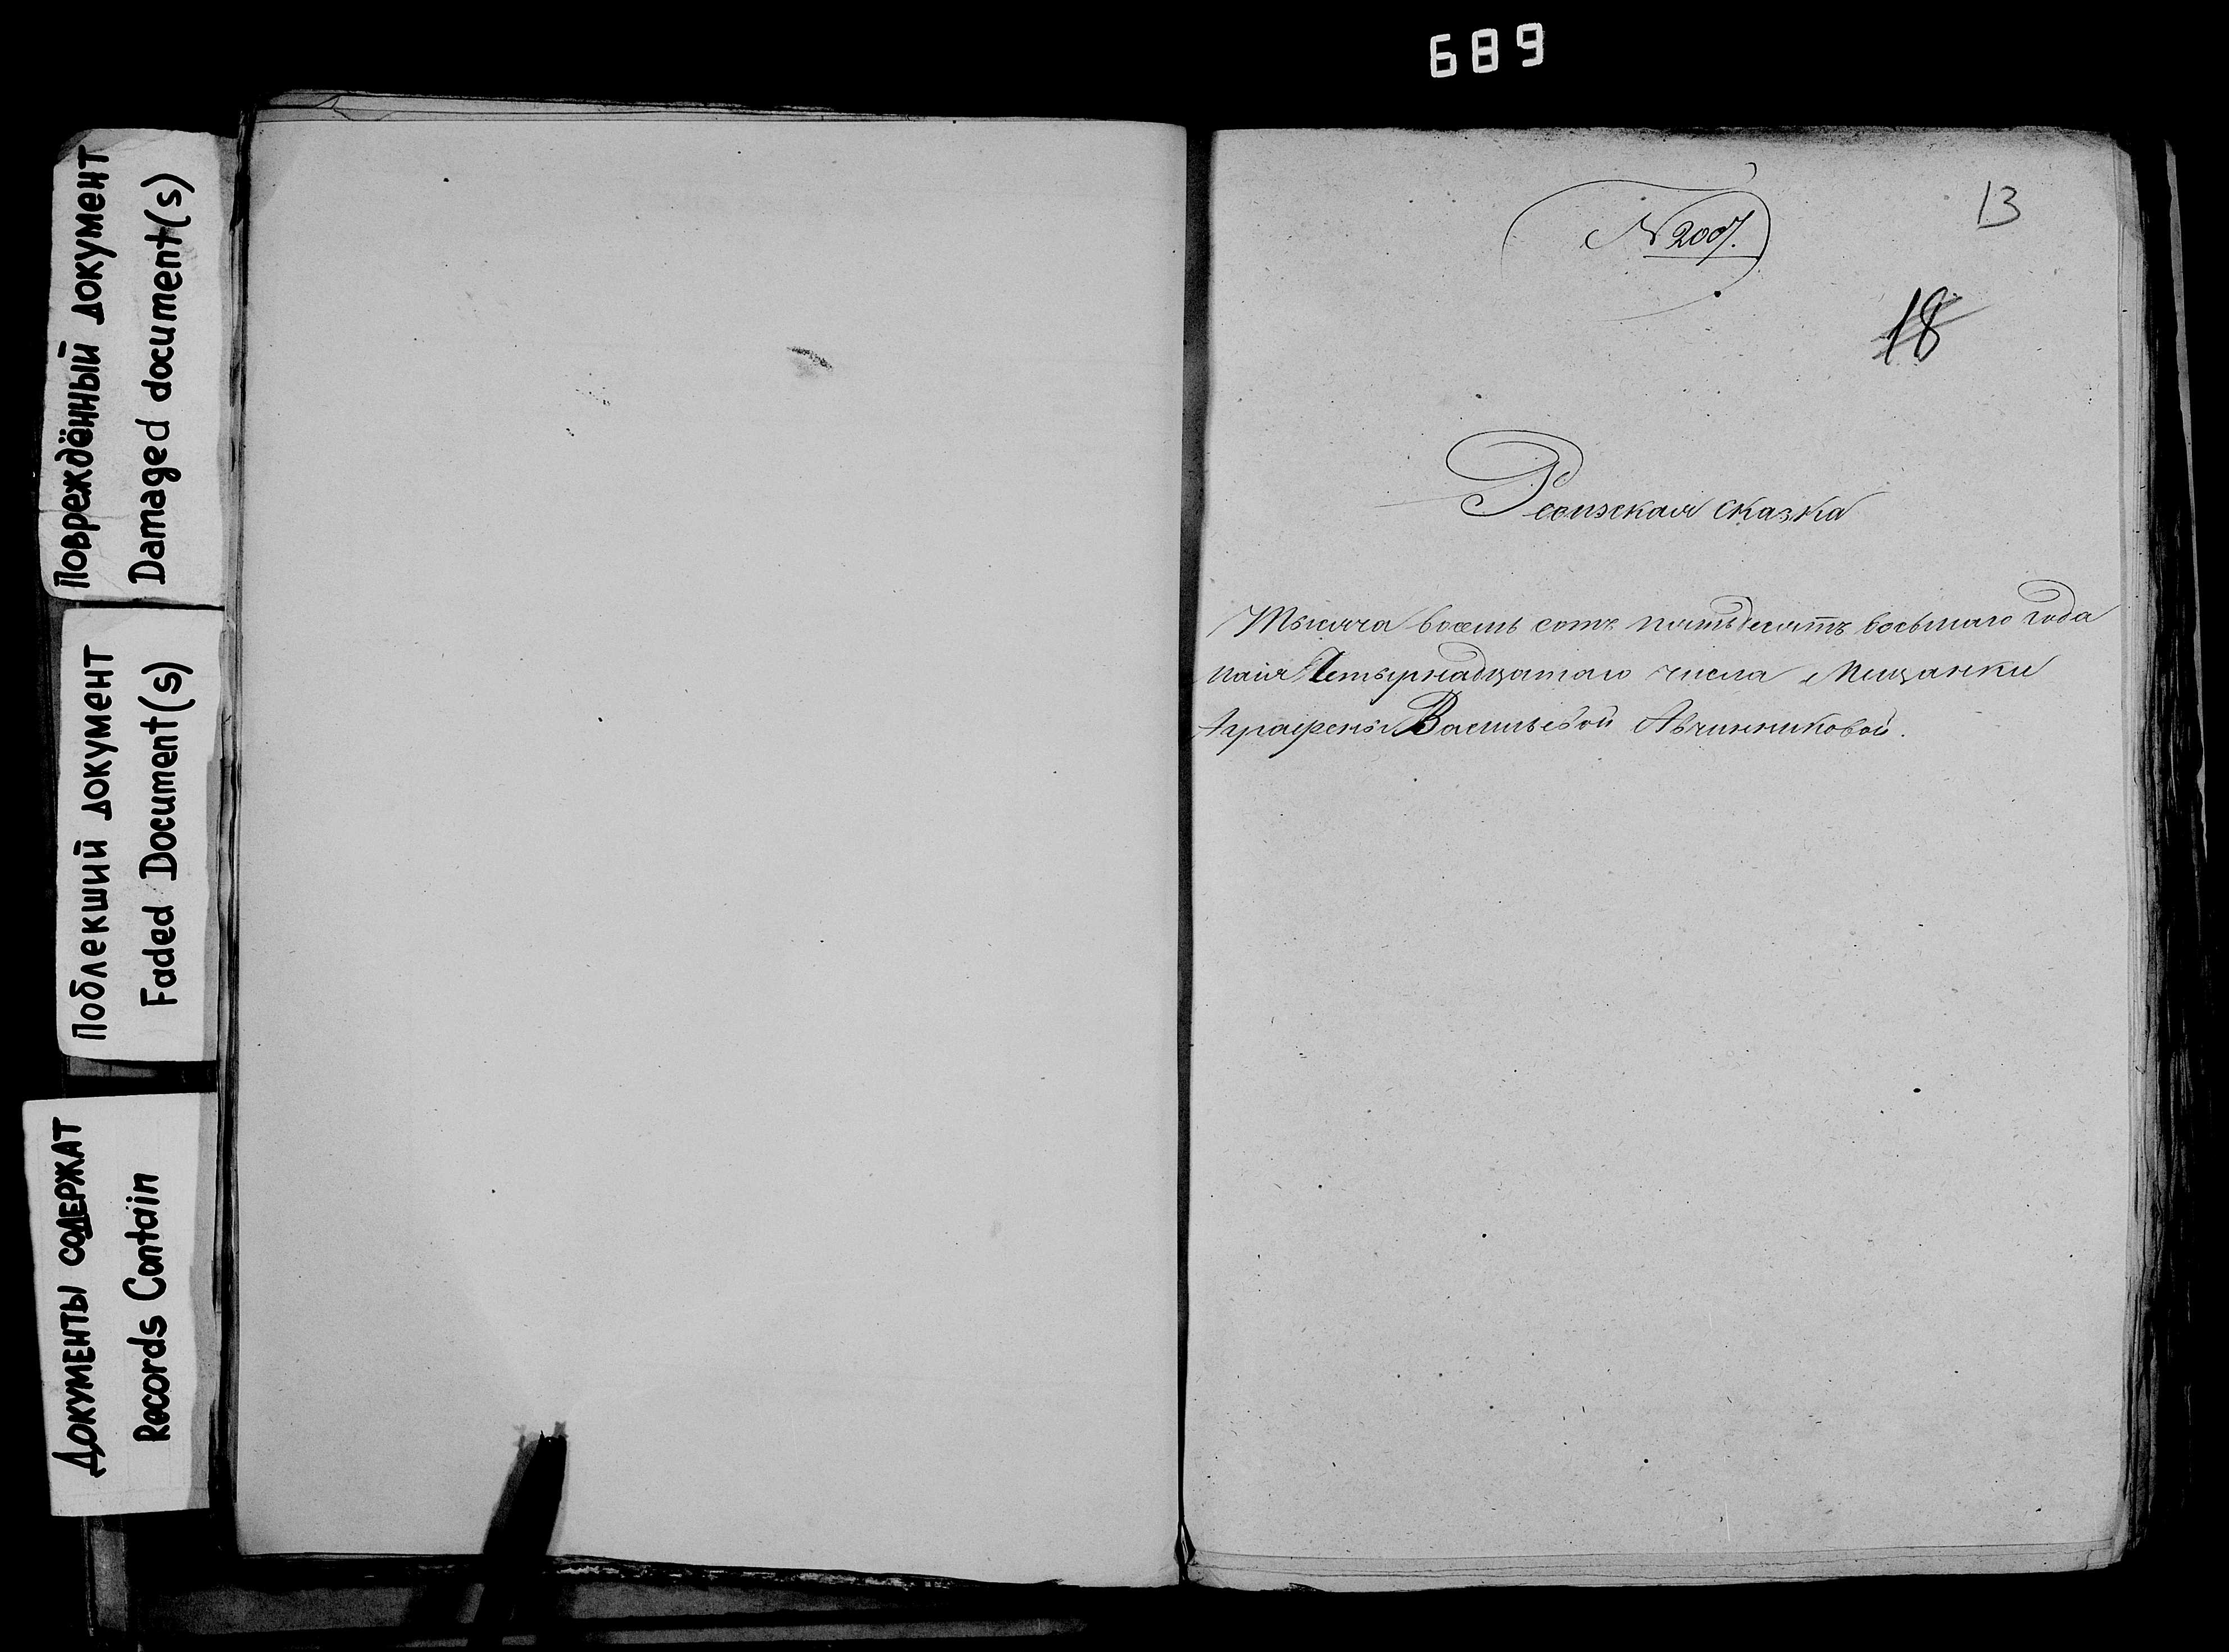 689
Повреждённый документ
Damaged document(s)
Поблекший документ
Faded Document(s)
Документы содержат
Records Contain
13
N 2007.
18
Ревизская сказка
Тысяча восемь сотъ пятьдесятъ восьмаго года
маiя Четырнадцатаго числа Мещанки
Аграфены Васильевой Авчинниковой.